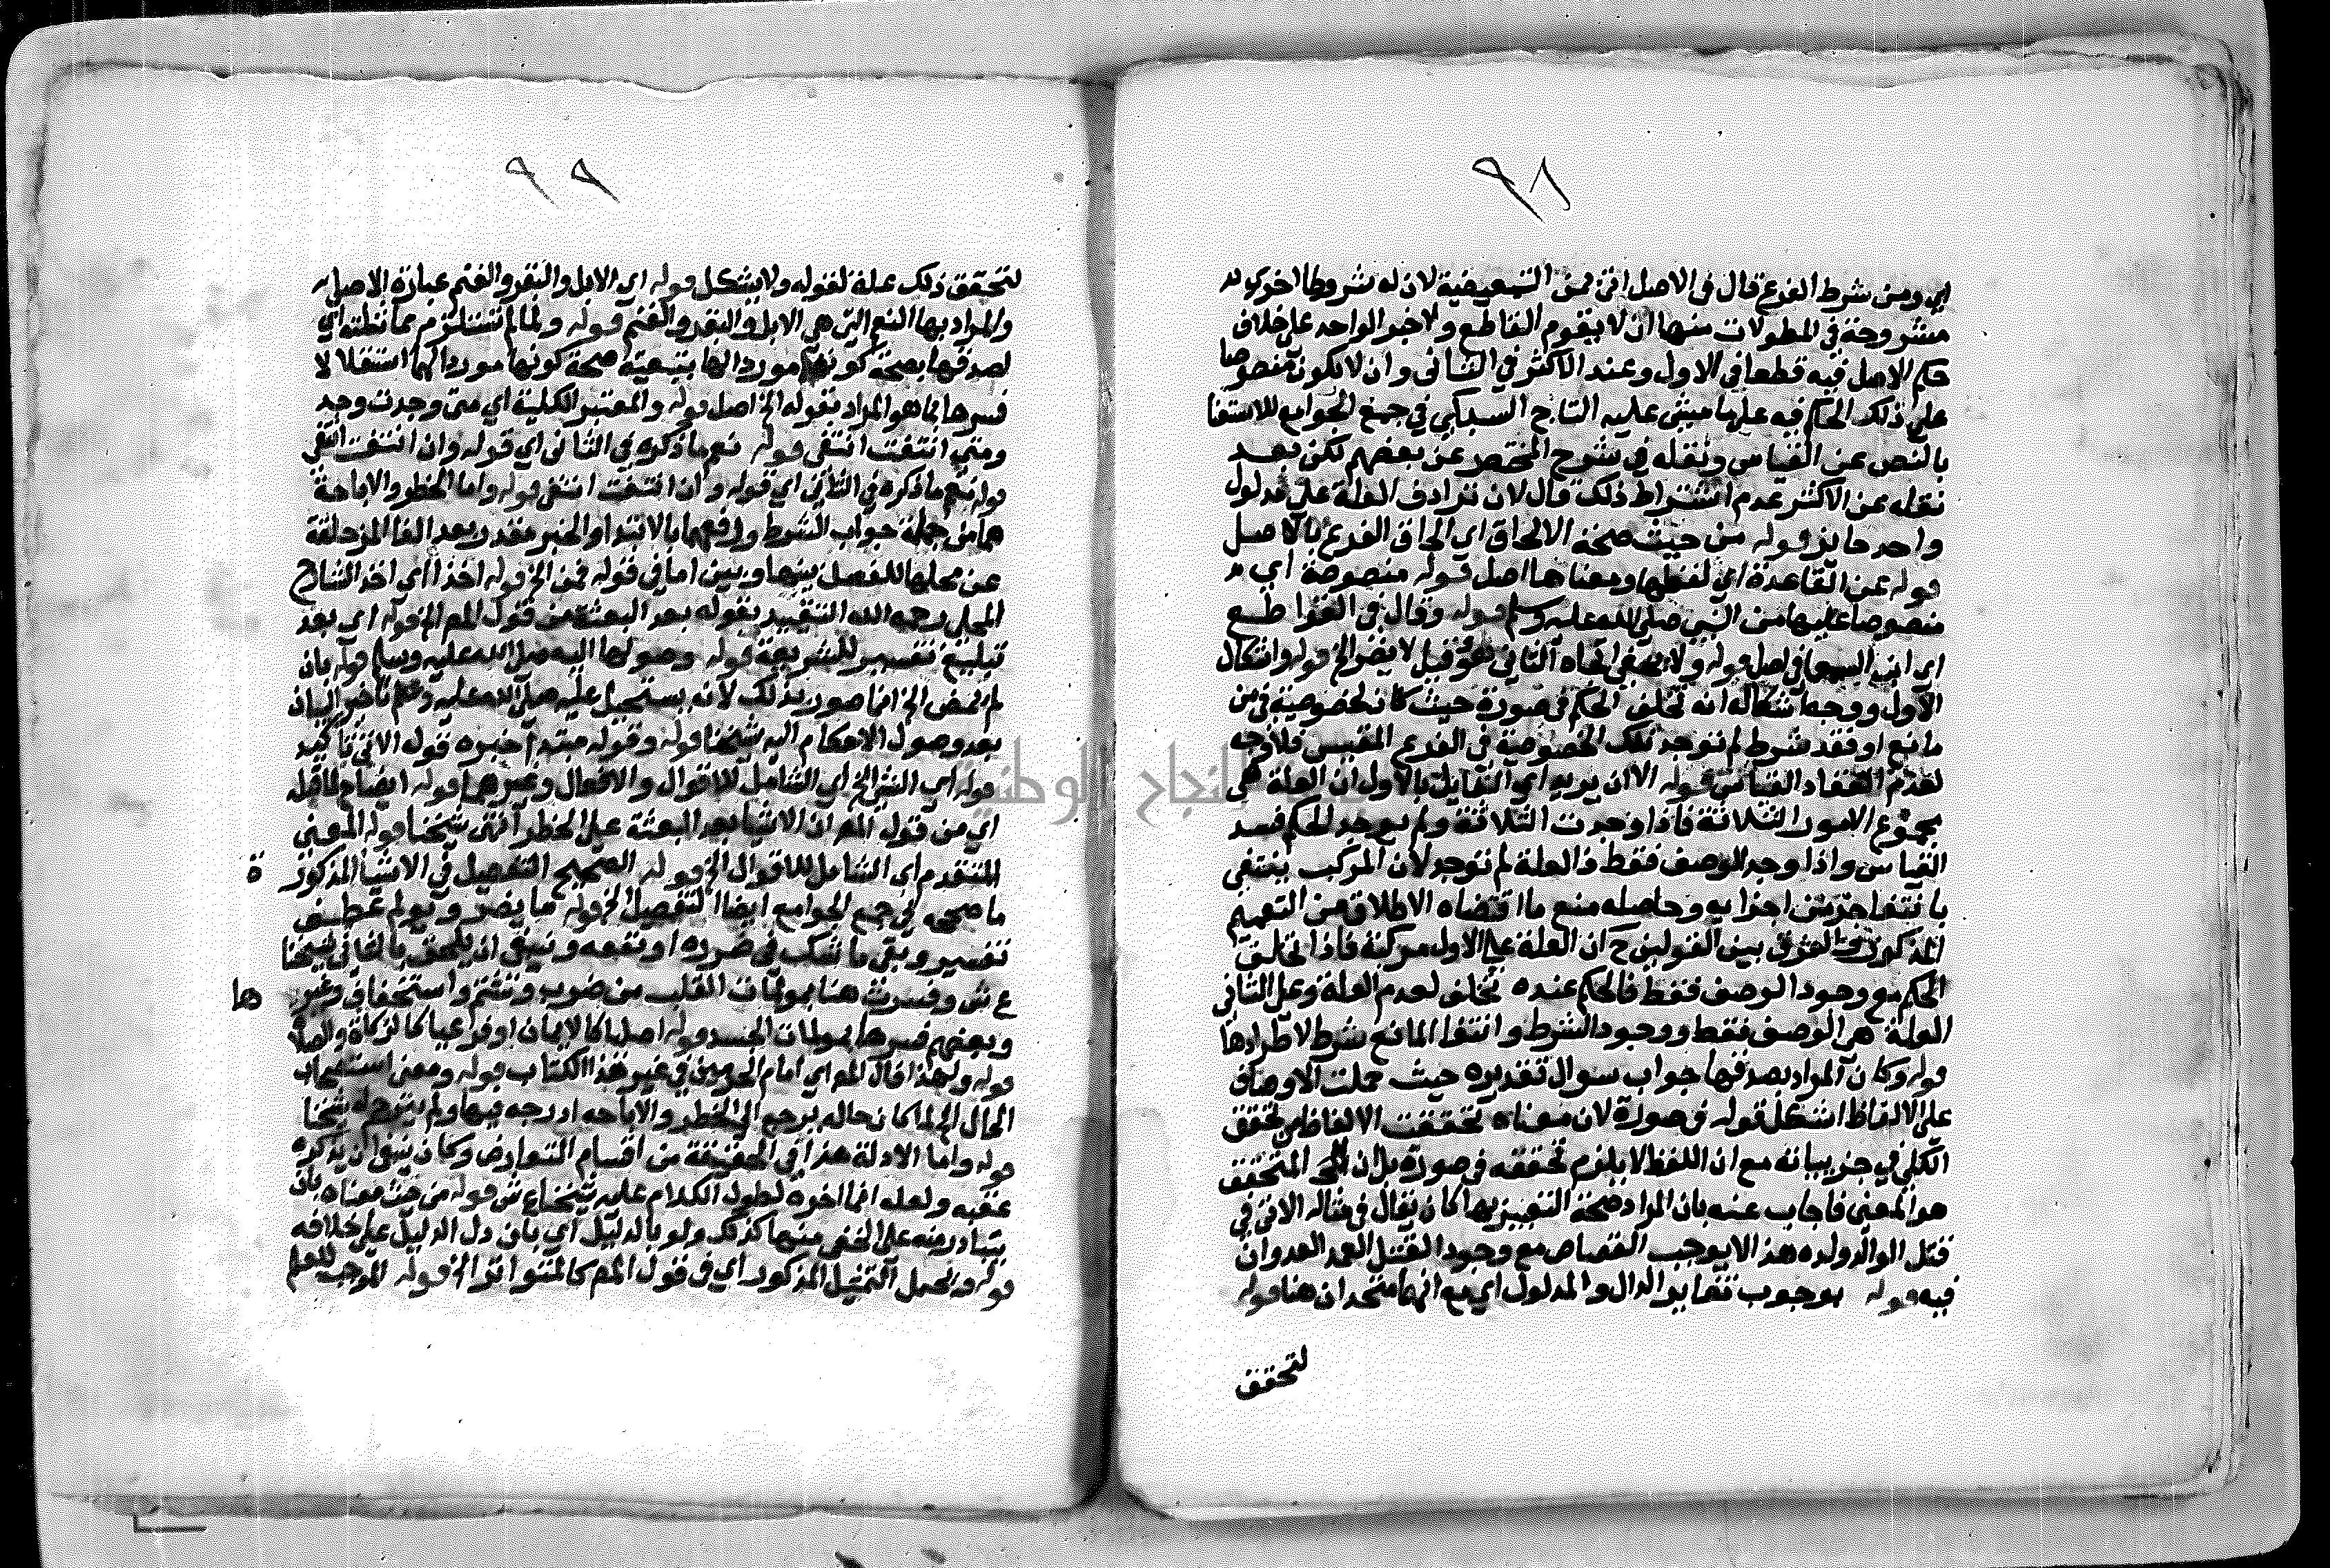 ٩٨
اي ومن شرط الفرع قال في الاصل اتى بمن التبعيضية لان له شروطا اخرى
مشروحة في المطولات منها ان لا يقوم القاطع ولا خبر الواحد على خلاف
حكم الاصل فيه قطعا في الاول وعند الاكثر في الثاني وان لا يكون منصوصا
على ذلك الحكم فيه على ما مشى عليه التاج السبكي في جمع الجوامع للاستغنا
بالنص عن القياس ونقله في شرح المختصر عن بعضهم لكن بعد
نقله عن الاكثر عدم اشتراط ذلك قال لان ترادف العلة على مدلول
واحد جايز قوله من حيث صحة الالحاق اي الحاق الفرع بالاصل
قوله عن القاعدة اي لفظها ومعناها اصل قوله منصوصة اي
منصوصا عليها من النبي صلى الله عليه وسلم قوله وقال في القواطع
اي ابن السمعاني اصل قوله ولا يخفى اتجاه الثاني هو وقيل لا يضر الخ قوله واشكال
الاول ووجه اشكاله انه تخلف الحكم في صورة حيث كان لخصوصية في من
مانع او فقد شرط لم توجد تلك الخصوصية في الفرع المقيس فلا وجه
لعدم انعقاد القياس قوله الا ان يريد اي القايل بالاول ان العلة هي
مجموع الامور الثلاثة فاذا وجدت الثلاثة ولم يوجد الحكم فسد
القياس واذا وجد الوصف فقط فالعلة لم توجد لان المركب ينتفي
بانتفا جزء من اجزايه وحاصله منع ما اقتضاه الاطلاق من التعميم
المذكور والفرق بين القولين ح ان العلة على الاول مركبة فاذا تخلف
الحكم مع وجود الوصف فقط فالحكم عنده تخلف لعدم العلة وعلى الثاني
العلة هي الوصف فقط ووجود الشرط وانتفا المانع شرط لاطرادها
قوله وكان المراد بصدقها جواب سوال تقديره حيث حملت الاوصاف
على الالفاظ اشكل قوله في صورة لان معناه تحققت الالفاظ تحقق
الكلي في جزيياته مع ان اللفظ لا يلزم تحققه في صورة بل ان المتحقق
هو المعنى فاجاب عنه بان المراد صحة التعبير بها كان يقال في مثاله الاتي في
قتل الوالد ولده هذا لا يوجب القصاص مع وجود القتل العمد العدوان
فيه قوله بوجوب تغاير الدال والمدلول اي مع انهما متحدان هنا قوله
لتحقق
٩٩
لتحقق ذلك علة لقوله ولا يشكل قوله اي الابل والبقر والغنم عبارة الاصل
والمراد بها النعم التي هي الابل والبقر والغنم قوله ولما لم تستلزم
لصدقها بصحة كونها موردا لها بتبعية صحة كونها موردا لهما استقلالا
فسرها بما هو المراد بقوله الخ اصل قوله والمعتبر الكلية اي متى وجدت وجد
ومتى انتفت انتفى قوله نعم ما ذكره في الثاني اي قوله وان انتفت انتفى
قوله نعم ما ذكره في الثاني اي قوله وان انتفت انتفى قوله واما الحظر والاباحة
هما من جملة جواب الشرط ورفعهما بالابتدا والخبر مقدر بعد الفا المزحلقة
عن محلها للفصل بينها وبين اما في قوله فمن الخ قوله اخذا اي اخذ الشارح
المحلي رحمه الله التقييد بقوله بعد البعثة من قول المص الخ قوله اي بعد
تبليغ تفسير للشريعة قوله وصولها اليه صلى الله عليه وسلم قوله بان
لم تمض الخ انما صور بذلك لانه يستحيل عليه صلى الله عليه وسلم تاخير البيان
بعد وصول الاحكام اليه شيخنا قوله وقوله مبتدا خبره قوله الاتي تاكيد
قوله اي الشي الخ اي الشامل للاقوال والافعال وغيرهما قوله ايضاح لما قبله
اي من قول المص ان الاشيا بعد البعثة على الحظر انتهى شيخنا قوله المعنى
المتقدم اي الشامل للاقوال الخ قوله الصحيح التفصيل في الاشيا المذكورة
ما صححه في جمع الجوامع ايضا التفصيل الخ قوله ما يضر ويولم عطف
تفسير وبقي ما شك في ضرره او نفعه وينبغي ان يلحق بالثاني شيخنا
ع ش وفسرت هنا بمولمات القلب من ضرب وشتم واستخفاف وغيرها
وبعضهم فسرها بمولمات الجسد قوله اصليا كالايمان او فرعيا كالزكاة والصلاة
قوله ولهذا قال المص اي امام الحرمين في غير هذا الكتاب قوله ومعنى استصحاب
الحال الخ لما كان حاله يرجع الى الحظر والاباحه ادرجه فيها ولم يترجم له شيخنا
قوله واما الادلة هذا في الحقيقة من اقسام التعارض وكان ينبغي ان يذكره
عقبه ولعله انما اخره لطول الكلام عليه شيخنا ع ش قوله من حيث معناه بان
يتبادر منه على الخفي منها كذلك ولو بالدليل اي بان دل الدليل على خلافه
قوله ويحمل التمثيل المذكور اي في قول المص كالمتواتر الخ قوله الموجب للعلم